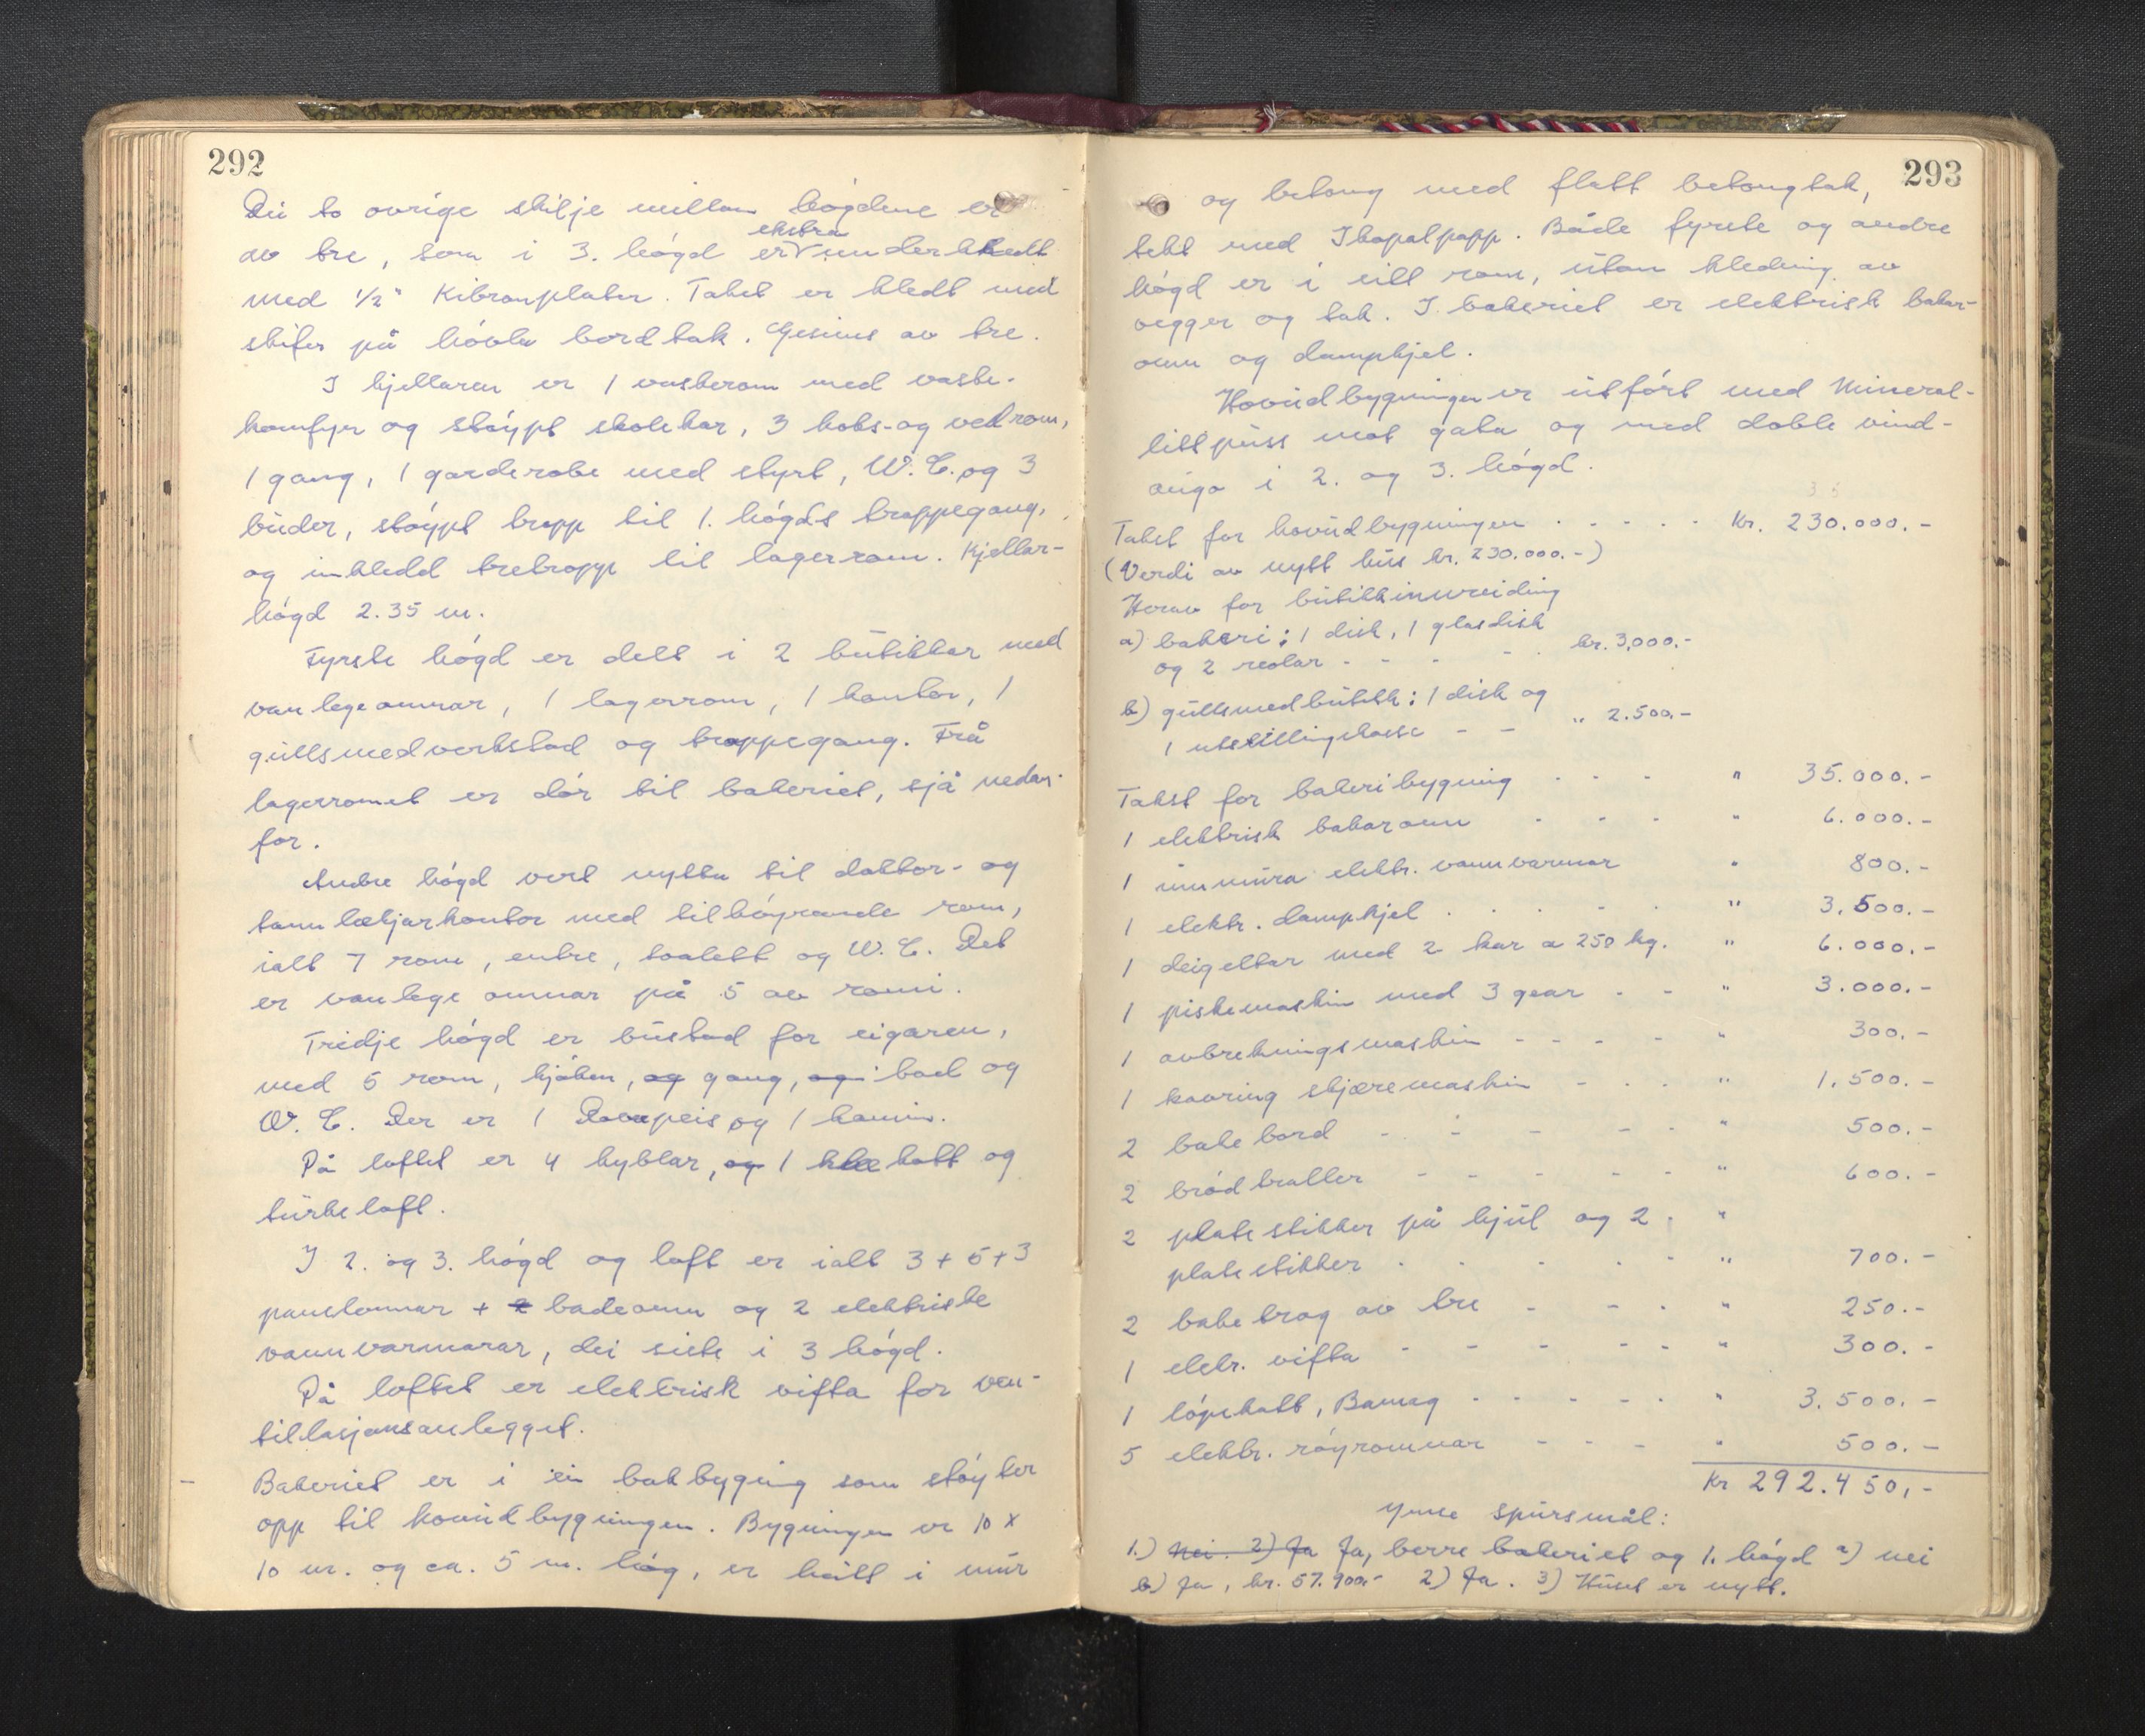 292
Dei to ovrige skilje millom høgdene er
av tre, som i 3. høgd er ekstra underkledt
med 1/2" Kibronplater. Taket er kledt med
skifer på høvla bordtak. Gesims av tre.
I kjellaren er 1 vaskerom med vaske-
komfyr og støypt skolekar, 3 koks- og vedrom,
1 gang, 1 garderobe med styrt, W.C. og 3
buder, støypt trapp til 1. høgds trappegang,
og innkledd tretrapp til lagerrom. Kjellar-
høgd 2.35 m.
Fyrste høgd er delt i 2 butikkar med
vanlege omnar, 1 lagerrom, 1 kontor, 1
gullsmedverkstad og trappegang. Frå
lagerromet er dør til bakeriet, sjå nedan-
for.
Andre høgd vert nytta til doktor- og
tannlækjarkontor med tilhøyrande rom,
ialt 7 rom, entre, toalett og W.C. Det
er vanlege omnar på 5 av romi.
Tridje høgd er bustad for eigaren,
med 5 rom, kjøken, og gang, og bad og
W.C. Der er 1 Dovrepeis og 1 kamin.
På loftet er 4 hyblar, og 1 kott og
turkeloft.
I 2. og 3. høgd og loft er ialt 3 + 5 + 3
panelomnar + 2 badeomn og 2 elektriske
vannvarmarar, dei siste i 3 høgd.
På loftet er elektrisk vifta for ven-
tillasjonsanlegget.
- Bakeriet er i ein bakbyging som støyter
opp til hovudbygningen. Bygningen er 10 x
10 m. og ca. 5 m. høg, er heilt i mur
293
og betong med flatt betongtak,
tekt med Ikopalpapp. Både fyrste og andre
høgd er i eitt rom, utan kledning av
vegger og tak. I bakeriet er elektrisk bakar-
omn og dampkjel.
Hovudbygningen er utført med Mineral-
littpuss mot gata og med doble vind-
augo i 2. og 3. høgd.
Takst for hovudbygningen . . . . . Kr. 230.000.-
(Verdi av nytt hus kr. 230.000.-)
Herav for butikkinnreiding
a) bakeri: 1 disk, 1 glasdisk
og 2 reolar - - - - kr. 3,000.-
b) gullsmedbutikk: 1 disk og
1 utstillingskasse - - " 2.500.-
Takst for bakeribygning . . - " 35.000.-
1 elektrisk bakaromn - - - " 6.000.-
1 innmura elektr. vannvarmar " 800.-
1 elektr. dampkjel . . . . . " 3.500.-
1 deigeltar med 2 kar a 250 kg. " 6.000.-
1 piskemaskin med 3 gear - - " 3.000.-
1 avbrekningsmaskin - - - - " 300.-
1 kavring skjæremaskin - . . " 1.500.-
2 bakebord - - - - - " 500.-
2 brødtraller - - - - - " 600.-
2 platestikker på hjul og 2 . "
platestikker . . . . . " 700.-
2 baketrog av tre - - . " 250.-
1 elektr. vifta - - - - - " 300.-
1 løpekatt, Bamag - - - - - " 3.500.-
5 elektr. røyromnar - - - " 500.-
Kr 292.450,-
Ymse spursmål:
1.) Nei. 2) Ja Ja, berre bakeriet og 1. høgd a) nei
b) Ja, kr. 57.900.- 2) Ja. 3) Huset er nytt.